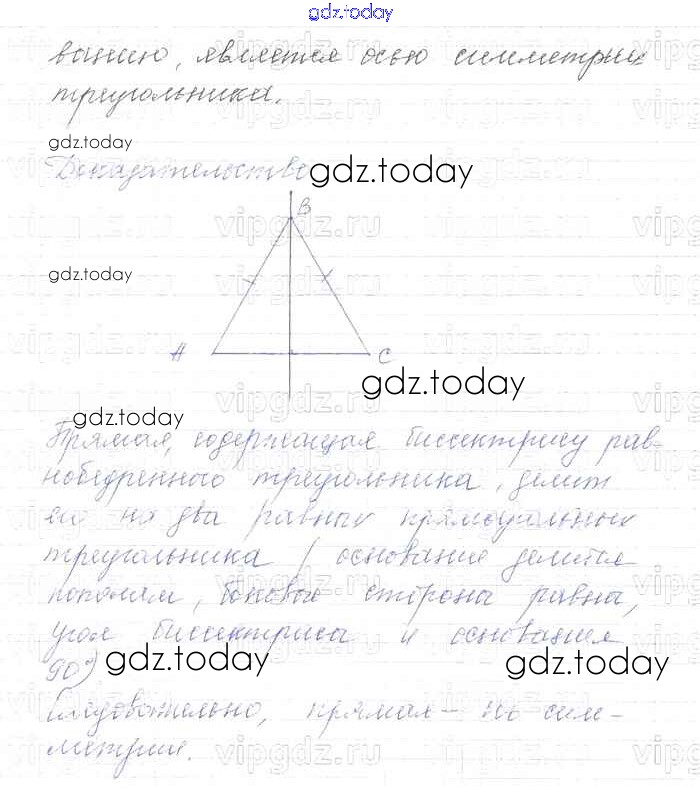 gdz.today
ванию, является осью симметрии
треугольника.
gdz.today
Доказательство
gdz.today
B
gdz.today
A
C
gdz.today
gdz.today
Прямая, содержащая биссектрису рав-
нобедренного треугольника, делит
его на два равных прямоугольных
треугольника / основание делится
пополам, боковые стороны равны,
угол биссектриса и основания
90°)
gdz.today
gdz.today
следовательно, прямая – ось сим-
метрии.